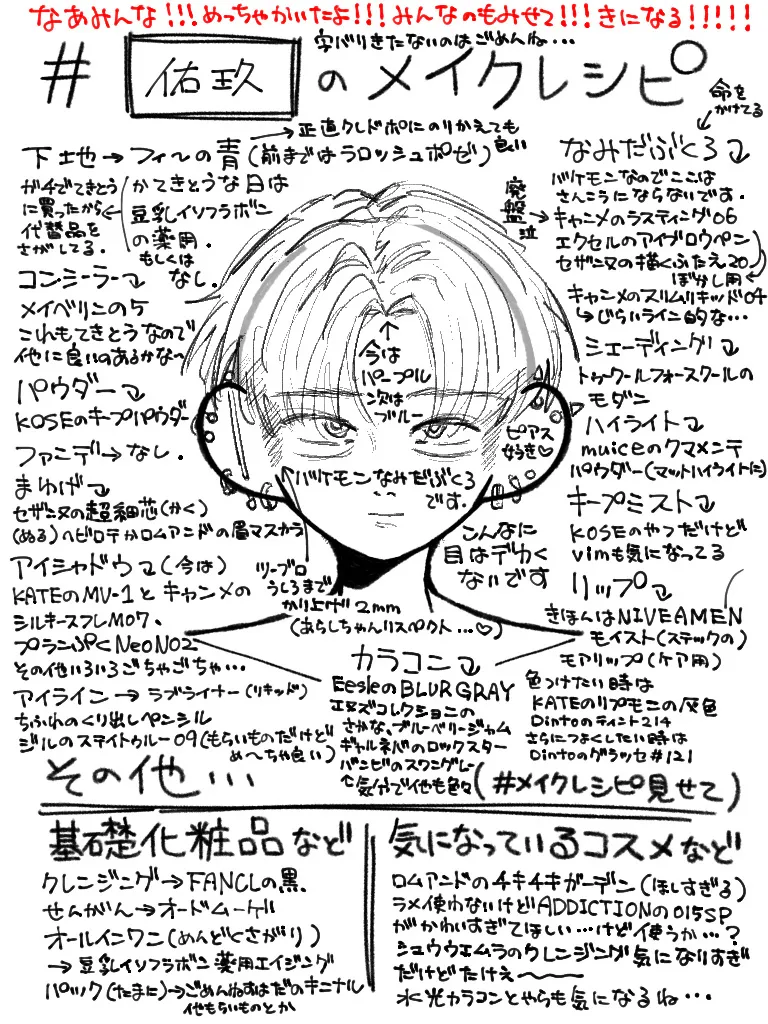 なあみんな!!!めっちゃかいたよ!!!みんなのもみせて!!!きになる!!!!!
字バリきたないのはごめんね・・・
# 佑玖 のメイクレシピ
下地→フィ〜の青
→正直クレドポにのりかえても良い
(前まではラロッシュポゼ)
ガチでてきとうに買ったから代替品をさがしてる.
かてきとうな日は
豆乳イソフラボン
の薬用.
もしくは
なし.
コンシーラー↴
メイベリンの5
これもてきとうなので
他に良いのあるかな〜
パウダー↴
KOSEのキープパウダー
ファンデ→なし.
まゆげ↴
セザンヌの超細芯(かく)
(ぬる)ヘビロテかロムアンドの眉マスカラ
アイシャドウ↴(今は)
KATEのMV-1とキャンメの
シルキースフレM07、
プランぷくNeoN02
その他いろいろごちゃごちゃ…
アイライン→ラブライナー(リキッド)
ちふれのくり出しペンシル
ジルのステイトゥルー09(もらいものだけど
めっちゃ良い)
今は
パープル
次は
ブルー
ピアス
好き♡
バケモンなみだぶくろ
です.
こんなに
目はデカく
ないです
ツーブロ
うしろまで
かり上げ2mm
(あらしちゃんリスペクト…♡)
カラコン↴
EesleのBLUR GRAY
エヌズコレクションの
さかな、ブルーベリージャム
ギャルネバのロックスター
バンビのスワングレー
↑気分で他も色々
命を
かけてる
なみだぶくろ↴
バケモンなのでここは
さんこうにならないです.
廃盤泣
キャンメのラスティング06
エクセルのアイブロウペン
セザンヌの描くふたえ20
ぼかし用
キャンメのスリムリキッド04
↳じらいライン的な…
シェーディング↴
トゥクールフォースクールの
モダン
ハイライト
muiceのクマメンテ
パウダー(マットハイライトに)
キープミスト↴
KOSEのやつだけど
vimも気になってる
リップ↴
きほんはNIVEAMEN
モイスト(ステックの)
モアリップ(ケア用)
色つけたい時は
KATEのリプモンの灰色
Dintoのティント214
さらにつよくしたい時は
Dintoのグラッセ#121
その他…
(#メイクレシピ見せて)
基礎化粧品など
クレンジング→FANCLの黒.
せんがん→オードムーゲ
オールインワン(めんどくさがり)
→豆乳イソフラボン薬用エイジング
パック(たまに)→ごめんねすはだのキニナル
他もらいものとか
気になっているコスメなど
ロムアンドのチキチキガーデン(ほしすぎる)
ラメ使わないけどADDICTIONの015SP
がかわいすぎてほしい…けど使うか…?
シュウウエムラのクレンジング気になりすぎ
だけどたけぇ〜〜〜
水光カラコンとやらも気になるね…